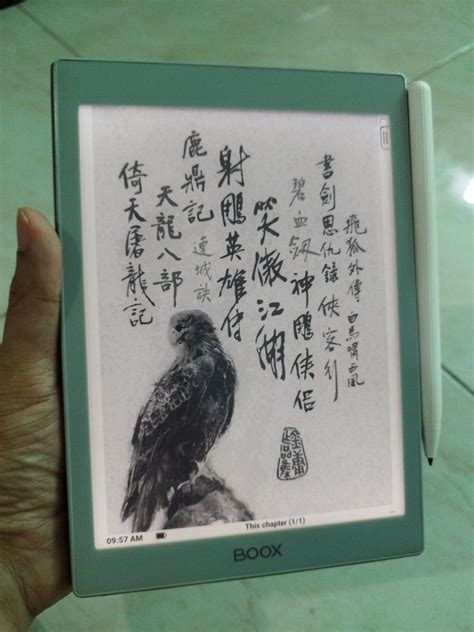 飛狐外傳 白馬嘯西風
書劍恩仇錄 俠客行
碧血劍 神鵰俠侶
笑傲江湖
射鵰英雄傳
鹿鼎記 連城訣
天龍八部
倚天屠龍記
金庸
作品集
This chapter (1/1)
09:57 AM
BOOX